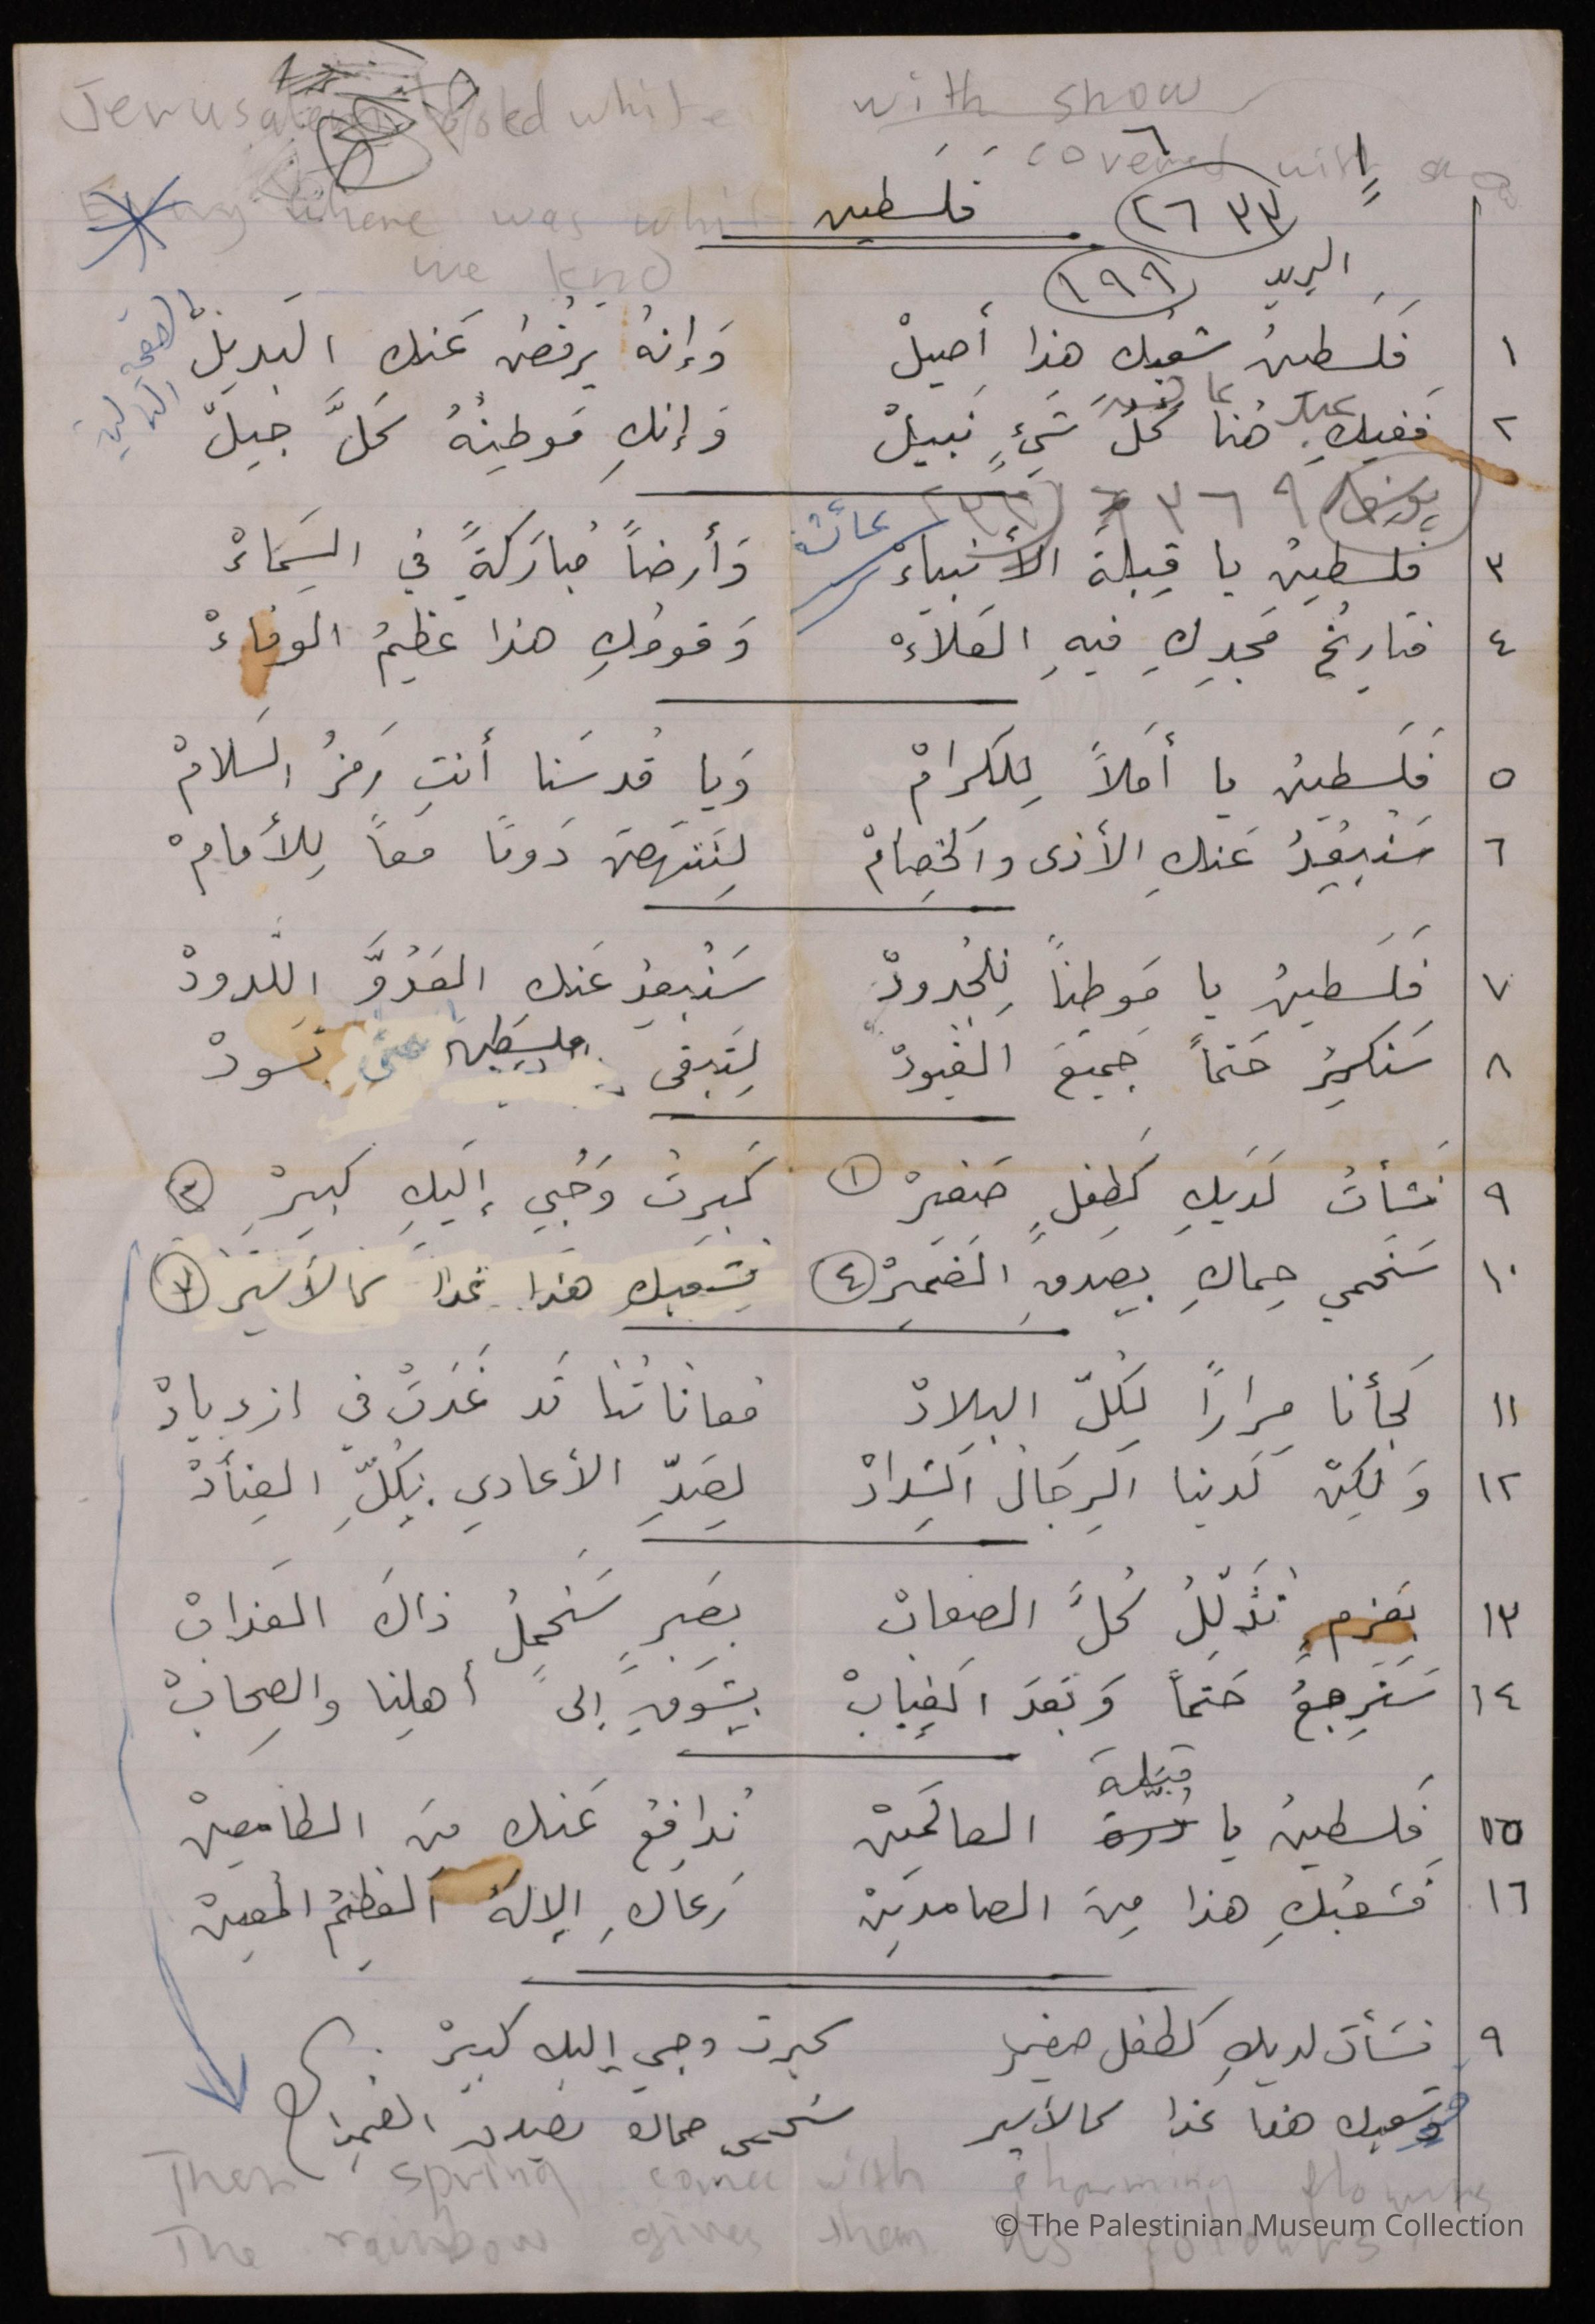 Jerusalem looked white with snow
covered with snow
فلسطين ٢٦٣٣
Every where was white
we
البريد ١٩٩
الصفحة التالية
١ فَلَسطينُ شعبُكِ هذا أَصيلْ وَإنهُ يرفُضُ عَنكِ البَديلْ
٢ فَفيكِ هُنا كُلُّ شَيءٍ نَبيلْ وَإنكِ مَوطِنُهُ كلَّ جيلْ
٣٦٩
عائشة
٣ فلسطينُ يا قِبلةَ الأنبياءْ وَأرضاً مُبارَكةً في السَمَاءْ
٤ فتاريخُ مَجدِكِ فيهِ العَلاَءْ وَقومُكِ هذا عَظيمُ الوفاءْ
٥ فَلَسطينُ يا أمَلاً لِلكرامْ وَيا قُدسَنا أنتِ رَمزُ السَلامْ
٦ سَنُبعِدُ عَنكِ الأذى والخِصَامْ لِنَنهَضَ دَومًا مَعاً لِلأمَامْ
٧ فَلَسطينُ يا مَوطِناً لِلجُدودْ سَنُبعِدُ عَنكِ العَدُوَّ اللّدودْ
٨ سَنكسِرُ حَتماً جَميعَ القيودْ لِتَبقى فلسَطينُ حتّى تَسَودْ
٩ نَشأتُ لَدَيكِ كَطِفلٍ صَغيرْ ① كَبِرتُ وَحُبي إلَيكِ كبيرْ ③
١٠ سَنَحمي حِماكِ بِصِدقِ الضَميرْ ④ فشَعبُكِ هَذا غَدا كالأسَيرْ ②
١١ لَجأنا مِراراً لِكُلِّ البلادْ مُعاناتُنا قَد غَدَتْ في ازديادْ
١٢ وَلكِنْ لَدينا الرِجَالُ الشِدادْ لِصَدِّ الأعادي بِكُلِّ العِنَادْ
١٣ بِعَزمٍ نُذَلّلُ كُلَّ الصعابْ بِصَبرٍ سَنَحمِلُ ذاكَ العَذابْ
١٤ سَنَرجِعُ حَتماً وَبَعدَ الغِيابْ بِشَوقٍ إلى أهلِنا والصِحابْ
قِبَلةَ
١٥ فَلسطينُ يا دُرة العالَمينْ نُدافِعُ عَنكِ مِنَ الطامعينْ
١٦ فشَعبُكِ هذا مِنَ الصامدينْ رَعاكِ الإلهُ العظيمُ المُعينْ
٩ نشأت لديكِ كطفل صغير كبرت وحبي إليك كبيرْ
فشعبك هذا غدا كالأسير سنحمي حماك بصدق الضمير
Then spring comes with charming flowers
The rainbow gives them its colours
© The Palestinian Museum Collection